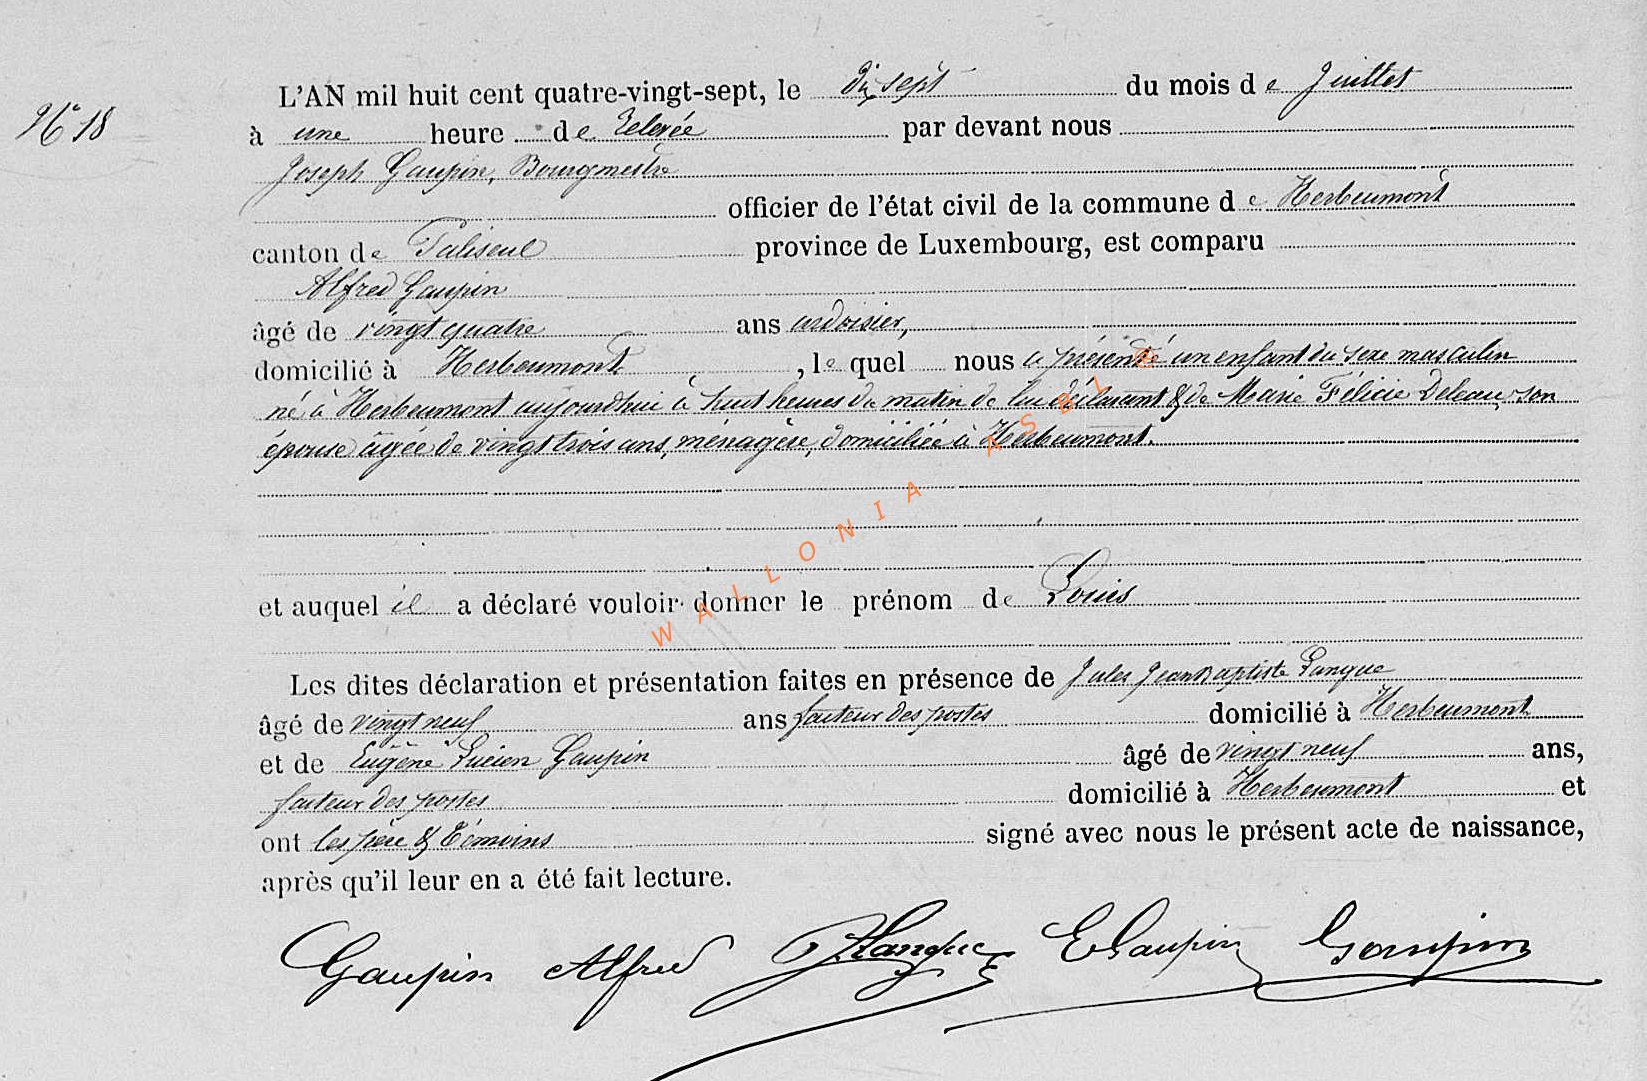 N° 18
L'AN mil huit cent quatre-vingt-sept, le dix sept du mois de Juillet
à une heure de relevée par devant nous
Joseph Gaupin, Bourgmestre
officier de l'état civil de la commune de Herbeumont
canton de Paliseul province de Luxembourg, est comparu
Alfred Gaupin
âgé de vingt quatre ans ardoisier,
domicilié à Herbeumont, le quel nous a présenté un enfant du sexe masculin
né à Herbeumont aujourdhui à huit heures du matin de lui déclarant & de Marie Félicie Deleau, son
épouse âgée de vingt trois ans, ménagère, domiciliée à Herbeumont.
et auquel il a déclaré vouloir donner le prénom de Louis
Les dites déclaration et présentation faites en présence de Jules Jean Baptiste Lanque
âgé de vingt neuf ans facteur des postes domicilié à Herbeumont
et de Eugène Lucien Gaupin âgé de vingt neuf ans,
facteur des postes domicilié à Herbeumont et
ont les père & témoins signé avec nous le présent acte de naissance,
après qu'il leur en a été fait lecture.
Gaupin Alfred JLanque EGaupin Gaupin
WALLONIA ASBL ©